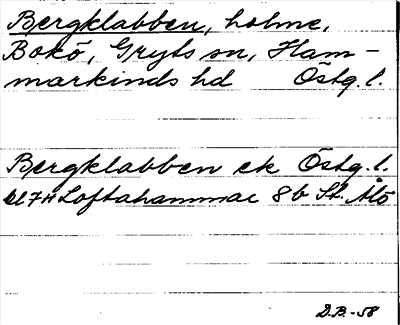 Bergklabben, holme,
Bokö, Gryts sn, Ham-
markinds hd Östg. l.
Bergklabben ek Östg. l.
Loftahammar 8b St. Ålö
D.B.-58